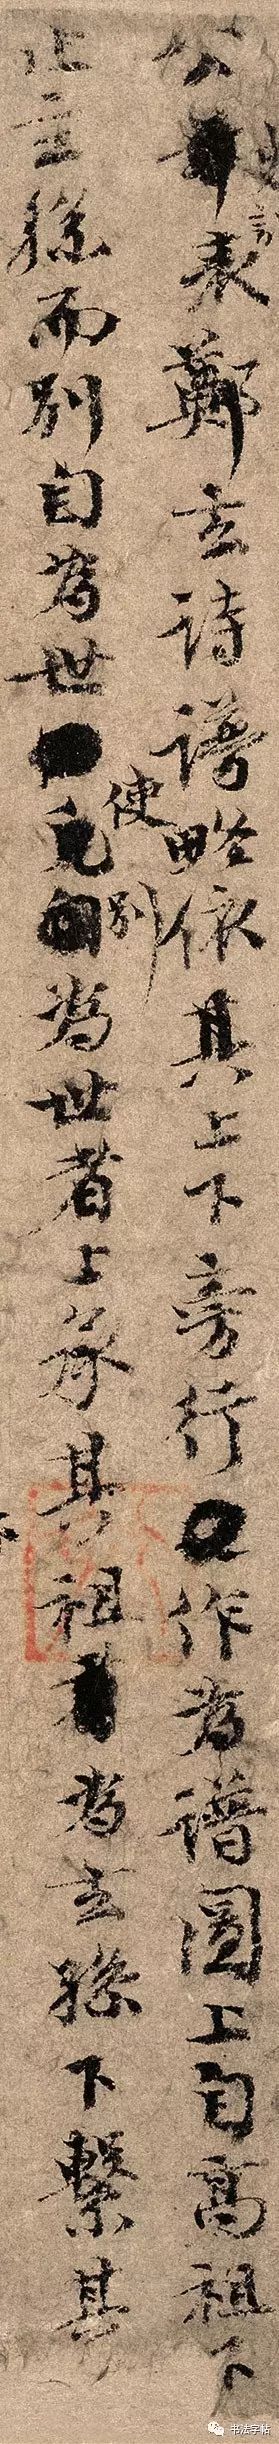 公表鄭玄詩譜略依其上下旁行作為譜圖上自高祖下
使別
止玄孫而別自為世為世者上承其祖為玄孫下繫其
书法字帖